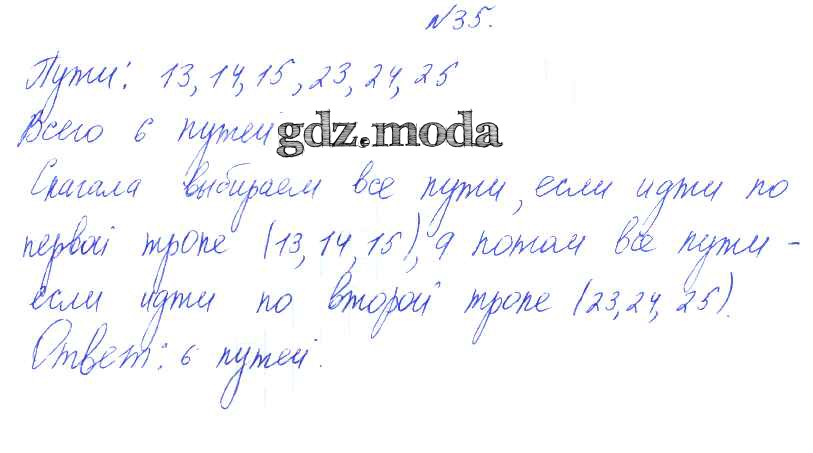 №35.
Пути: 13, 14, 15, 23, 24, 25
Всего 6 путей
gdz.moda
Сначала выбираем все пути, если идти по
первой тропе (13, 14, 15), а потом все пути -
если идти по второй тропе (23, 24, 25).
Ответ: 6 путей.